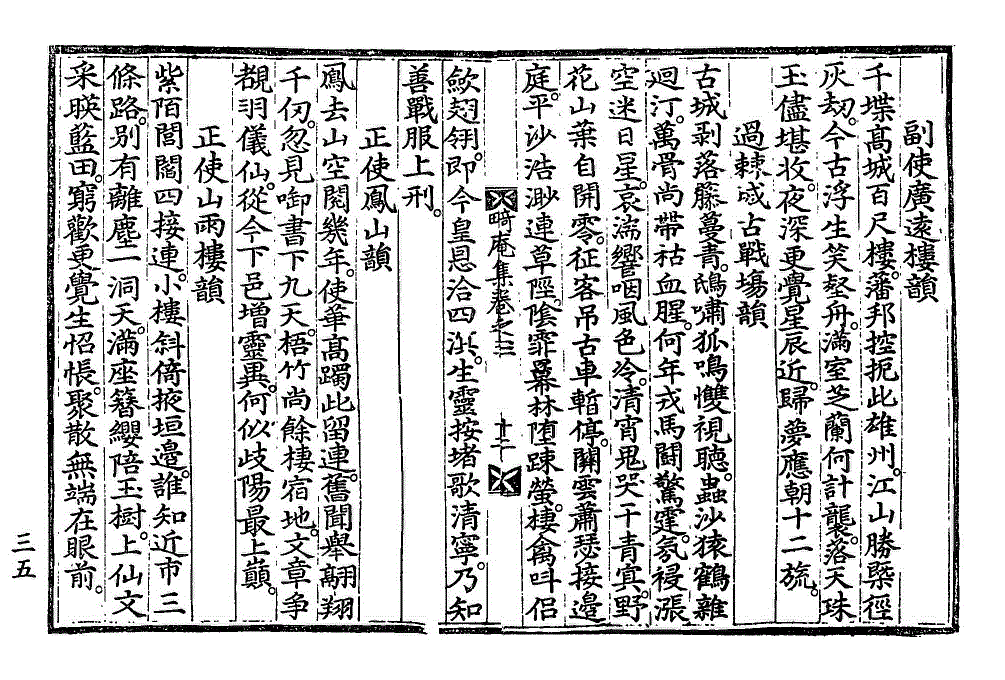 副使廣遠樓韻
千堞高城百尺樓。藩邦控扼此雄州。江山勝槩徑
灰刼。今古浮生笑壑舟。滿室芝蘭何計襲。落天珠
玉儘堪收。夜深更覺星辰近。歸夢應朝十二旒。
過棘城古戰場韻
古城剥落藤蔓青。鴟嘯狐鳴慺視聽。蟲沙猿鶴雜
迴汀。萬骨尚帶枯血腥。何年戎馬鬪驚霆。氛祲漲
空迷日星。哀湍響咽風色冷。清宵鬼哭干青冥。野
花山葉自開零。征客吊古車暫停。關雲蕭瑟接邊
庭。平沙浩渺連草陘。陰霏羃林堕踈螢。棲禽呌侣
歛翅翎。即今皇恩洽四溟。生靈按堵歌清寧。乃知
善戰服上刑。
正使鳳山韻
鳳去山空閱幾年。使華高躅此留連。舊聞舉翮翔
千仞。忽見啣書下九天。梧竹尚餘棲宿地。文章争
覩羽儀仙。從今下邑增靈異。何似歧陽最上巓。
正使山雨樓韻
紫陌閭閻四接連。小樓斜倚掖垣邊。誰知近市三
條路。别有離塵一洞天。滿座簪纓陪玉樹。上仙文
采暎藍田。窮歡更覺生怊悵。聚散無端在眼前。
畸庵集卷之三
十二
三五